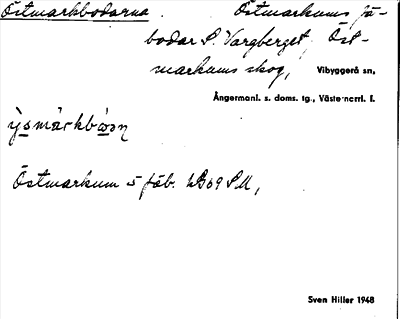 Östmarkbodarna. Östmarkums fä-
bodar S. Vargberget, Öst-
markums skog, Vibyggerå sn,
Ångermanl. s. doms. tg., Västernorrl. l.
Östmarkum 5 fäb. LB69 SM,
Sven Hiller 1948